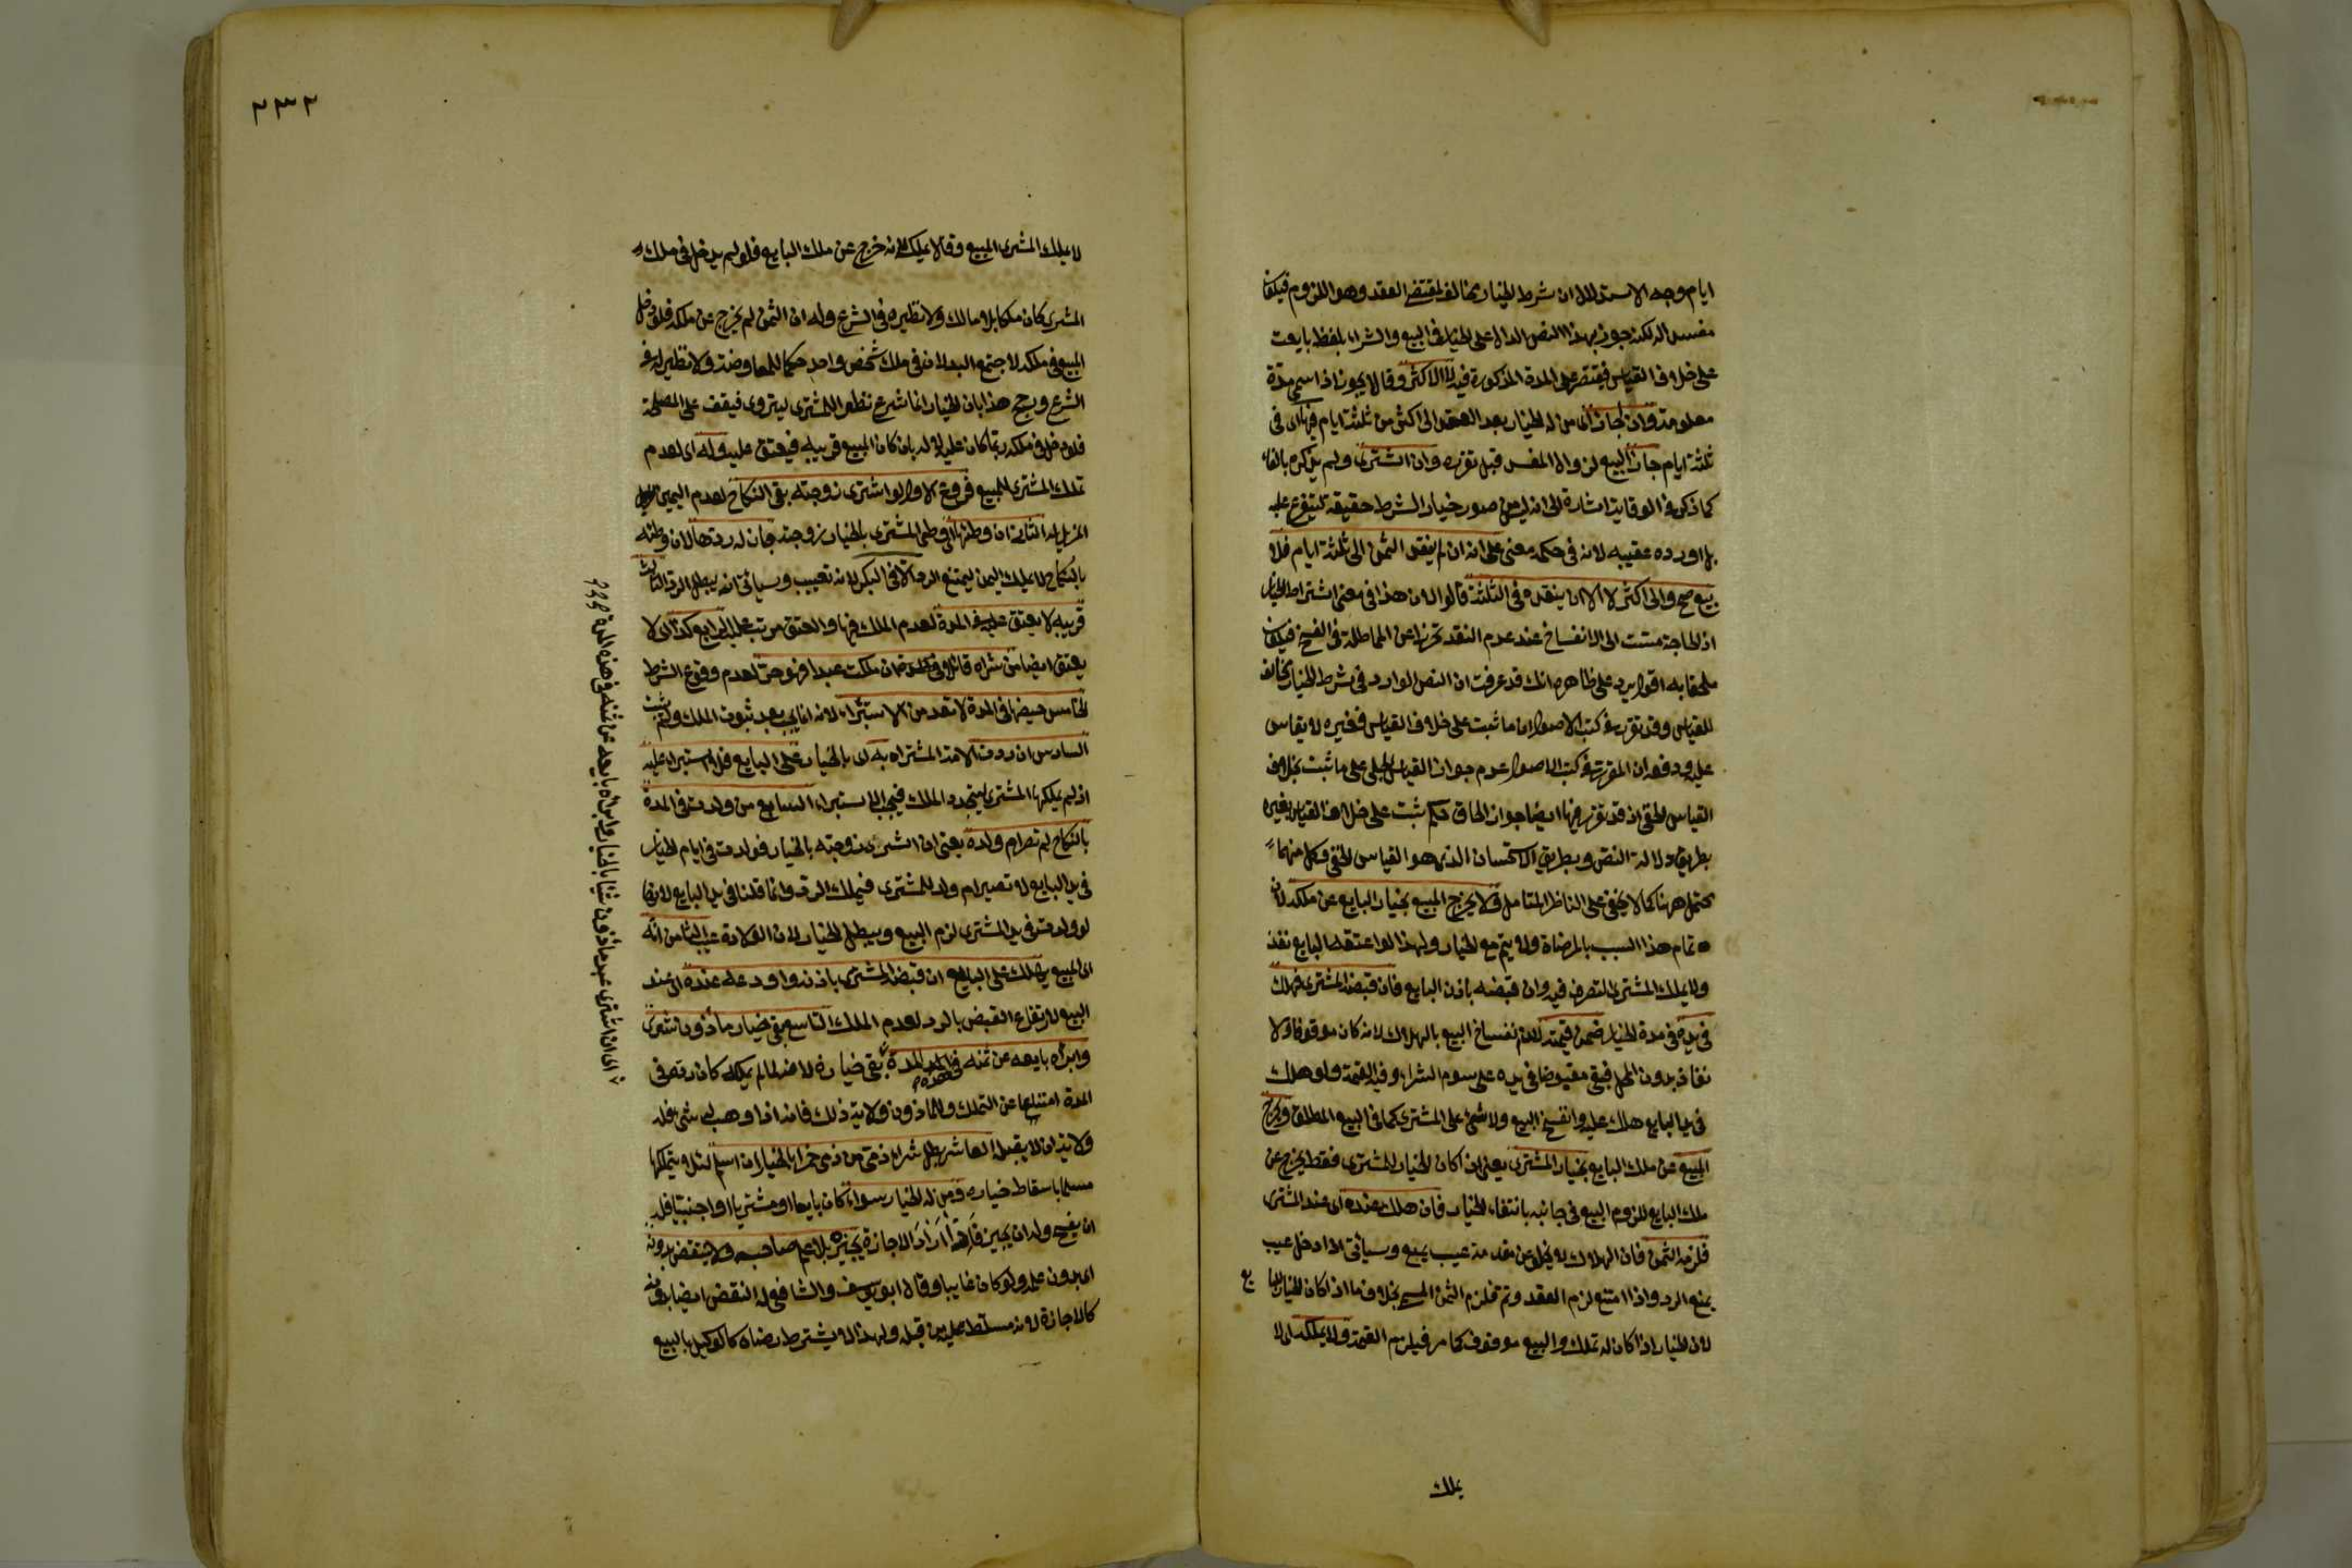 ايام وجه الاستدلال ان شرط الخيار يخالف لمقتضى العقد وهو اللزوم فيكون
مفسدا له لكنه جوز بهذا النص الدال على الخيار في البيع والشراء بلفظ بايعت
على خلاف القياس فيقتصر على المدة المذكورة فيه لا اكثر وقالا يجوز اذا سمى مدة
معلومة وان اجاز اى من له الخيار بعد العقد الى اكثر من ثلثة ايام فيها اى فى
ثلثة ايام جاز البيع لزوال المفسد قبل تقرره وان اشترى ولم يذكره بالفاء
كما ذكر فى الوقاية اشارة الى انه ليس من صور خيار الشرط حقيقة ليتفرع عليه
بل اورده عقيبه لانه فى حكمه معنى على انه ان لم ينقد الثمن الى ثلثة ايام فلا
بيع صح والى اكثر لا الا ان ينقده فى الثلثة قالوا لان هذا فى معنى اشتراط الخيار
اذ الحاجة مست الى الانفساخ عند عدم النقد تحرزا عن المماطلة فى الفسخ فيكون
ملحقا به اقول يرد على ظاهره انك قد عرفت ان النص الوارد فى شرط الخيار مخالف
للقياس وقد تقرر فى كتب الاصول ان ما ثبت على خلاف القياس فغيره لا يقاس
عليه ودفعه ان المقرر فى كتب الاصول عدم جواز القياس الجلى على ما ثبت بخلاف
القياس الخفى اذ قد تقرر فيها ايضا جواز الحاق حكم ثبت على خلاف القياس بغيره
بطريق دلالة النص وبطريق الاستحسان الذى هو القياس الخفى وكل منهما
محتمل ههنا كما لا يخفى على الناظر المتامل ولا يخرج المبيع بخيار البايع عن ملكه لان
تمام هذا السبب بالمرضاة ولا يتم مع الخيار ولهذا لو اعتقه البايع نفذ
ولا يملك المشترى التصرف فيه وان قبضه باذن البايع فان قبضه المشترى فهلك
فى يده فى مدة الخيار ضمن قيمته لانفساخ البيع بالهلاك لانه كان موقوفا ولا
نفاذ بدون المحل فبقى مقبوضا فى يده على سوم الشراء وفيه القيمة ولو هلك
فى يد البايع هلك عليه وانفسخ البيع ولا شئ على المشترى كما فى البيع المطلق ويخرج
المبيع عن ملك البايع بخيار المشترى يعنى ان كان الخيار للمشترى فقط يخرج عن
ملك البايع للزوم البيع فى جانبه بانتفاء الخيار فان هلك عنده اى عند المشترى
فلزمه الثمن فان الهلاك لا يخلو عن مقدمة عيب يبيع وسياتى اذا دخل عيب
يمنع الرد واذا امتنع لزم العقد وتم فلزم الثمن المسمى بخلاف ما اذا كان الخيار للبايع
لان الخيار اذا كان له تملك والبيع موقوف كما مر فيلزم القيمة ولا يملكه اى لا
يملك
٢٣٢
لا يملك المشترى المبيع وقالا يملك لانه خرج عن ملك البايع فلو لم يدخل فى ملك
المشترى كان ملكا بلا مالك ولا نظير له فى الشرع وله ان الثمن لم يخرج عن ملكه فلو دخل
المبيع فى ملكه لاجتمع البدلان فى ملك شخص واحد حكما للمعاوضة ولا نظير له فى
الشرع ورجح هذا بان الخيار انما شرع نظرا للمشترى ليتروى فيقف على المصلحة
فلو دخل فى ملكه ربما كان عليه لا له بان كان المبيع قريبه فيعتق عليه وله اى لعدم
تملك المشترى للمبيع فروع الاول لو اشترى زوجته بقى النكاح لعدم اليمين
المزيل له الثانى ان وطئها اى وطئ المشترى بالخيار زوجته جاز له ردها لان وطئه
بالنكاح لا بملك اليمن ليمتنع الرد الا فى البكر لانه تعييب وسياتى انه يبطل الرد الثالث
قريبه لا يعتق عليه فى المدة لعدم الملك فيها والعتق مرتب عليه الرابع كذا اى لا
يعتق ايضا من شراه قائلا ان ملكت عبدا فهو حر لعدم وقوع الشرط
الخامس حيضها فى المدة لا تعد من الاستبراء لانه انما يجب بعد ثبوت الملك ولم يثبت
السادس ان ردت الامة المشتراة به اى بالخيار على البايع فلا استبراء عليه
اذ لم يملكها المشترى ليتجدد الملك فيجب الاستبراء السابع من ولدت فى المدة
بالنكاح لم تصر ام ولده يعنى ان اشترى زوجته بالخيار فولدت فى ايام الخيار
فى يد البايع لا تصير ام ولد للمشترى فيملك الرد وانما قلنا فى يد البايع لانها
لو ولدت فى يد المشترى لزم البيع ويبطل الخيار لان الولادة عيب الثامن انه
اى المبيع يهلك على البايع ان قبضه المشترى باذنه واودعه عنده اى عند
البيع لارتفاع القبض بالرد لعدم الملك التاسع بقى خيار ماذون اشترى
وابرأه بايعه عن ثمنه فى المدة بقى خياره لانه لما لم يملكه كان رده فى
المدة امتناعا عن التملك وللماذون ولاية ذلك فانه اذا وهب له شئ فله
ولاية ان لا يقبل العاشر بطل شراء ذمى من ذمى خمرا بالخيار ان اسلم لئلا يتملكها
مسلما باسقاط خياره ومن له الخيار سواء كان بايعا او مشتريا او اجنبيا فله
ان يفسخ وله ان يجيز فاذا اراد الاجازة يجيزه بلا علم صاحبه ولا ينتقض بدونه
اى بدون علمه ولو كان غايبا وقال ابو يوسف والشافعى له النقض ايضا بدونه
كالاجازة لانه مسلط عليه من قبله ولهذا لا يشترط رضاه كالوكيل بالبيع
اى ان اشترى عبد ماذون شيئا بالخيار وابراه بايعه عن ثمنه فى هذه المدة